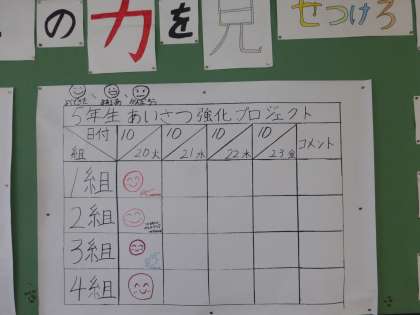 の力を見せつけろ
5年生あいさつ強化プロジェクト
日付 組 10/20火 10/21水 10/22木 10/23金 コメント
1組
2組
3組
4組